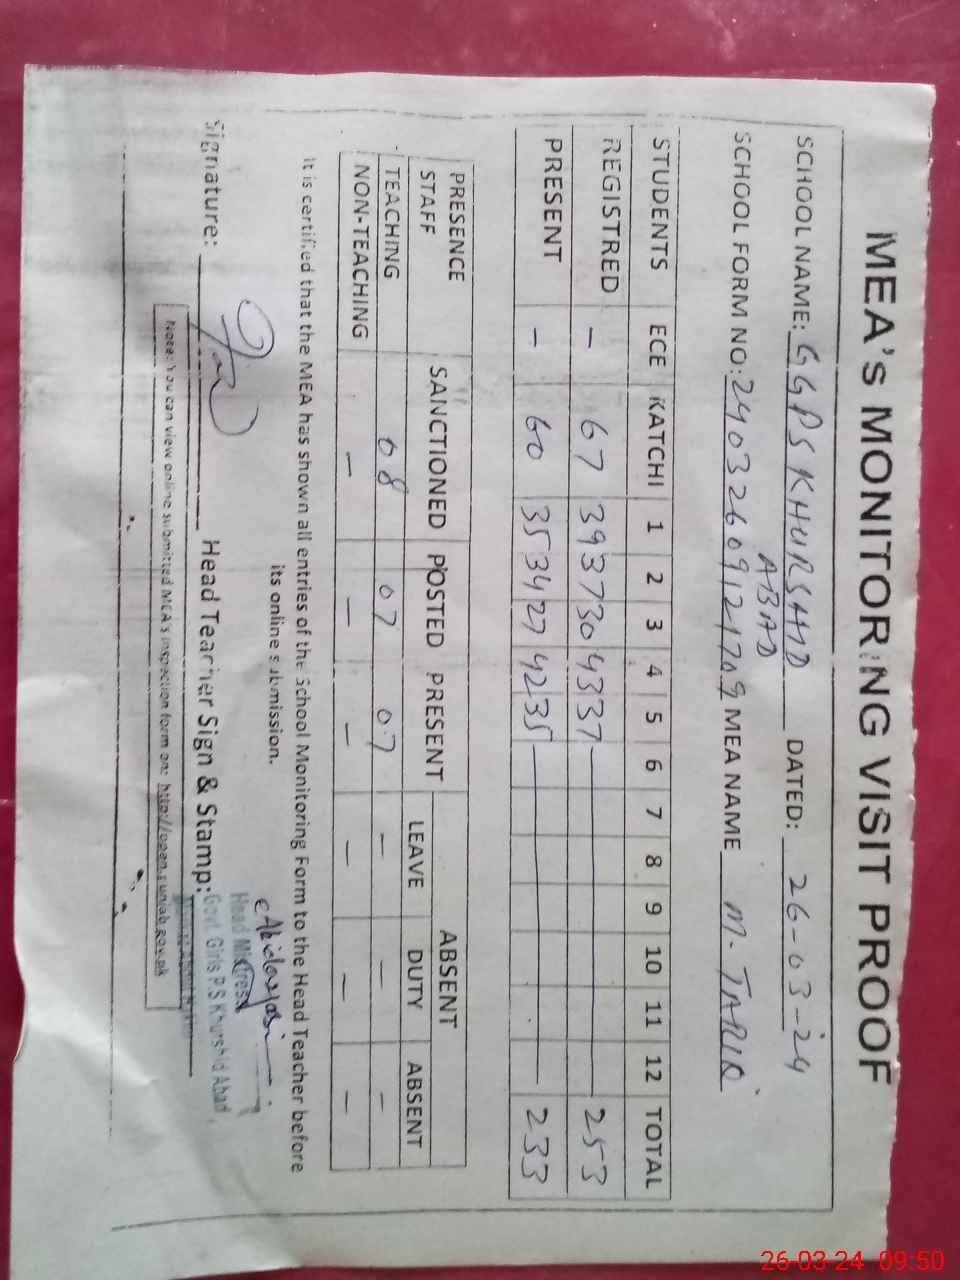 MEA's MONITORING VISIT PROOF
SCHOOL NAME: GGPS KHURSHID DATED: 26-03-24
ABAD
SCHOOL FORM NO: MEA NAME M. TARIQ
STUDENTS ECE KATCHI 1 2 3 4 5 6 7 8 9 10 11 12 TOTAL
REGISTRED - 67 39 37 30 43 37 253
PRESENT - 60 35 34 27 42 35 233
PRESENCE SANCTIONED POSTED PRESENT ABSENT
STAFF LEAVE DUTY ABSENT
TEACHING 08 07 07 - - -
NON-TEACHING - - - - - -
It is certified that the MEA has shown all entries of the School Monitoring Form to the Head Teacher before
its online submission.
Signature: Head Teacher Sign & Stamp:
Head Mistress
Govt. Girls P.S Khurshid Abad
Note: You can view online submitted MEA's inspection form on: http://open.punjab.gov.pk
26-03-24 09:50